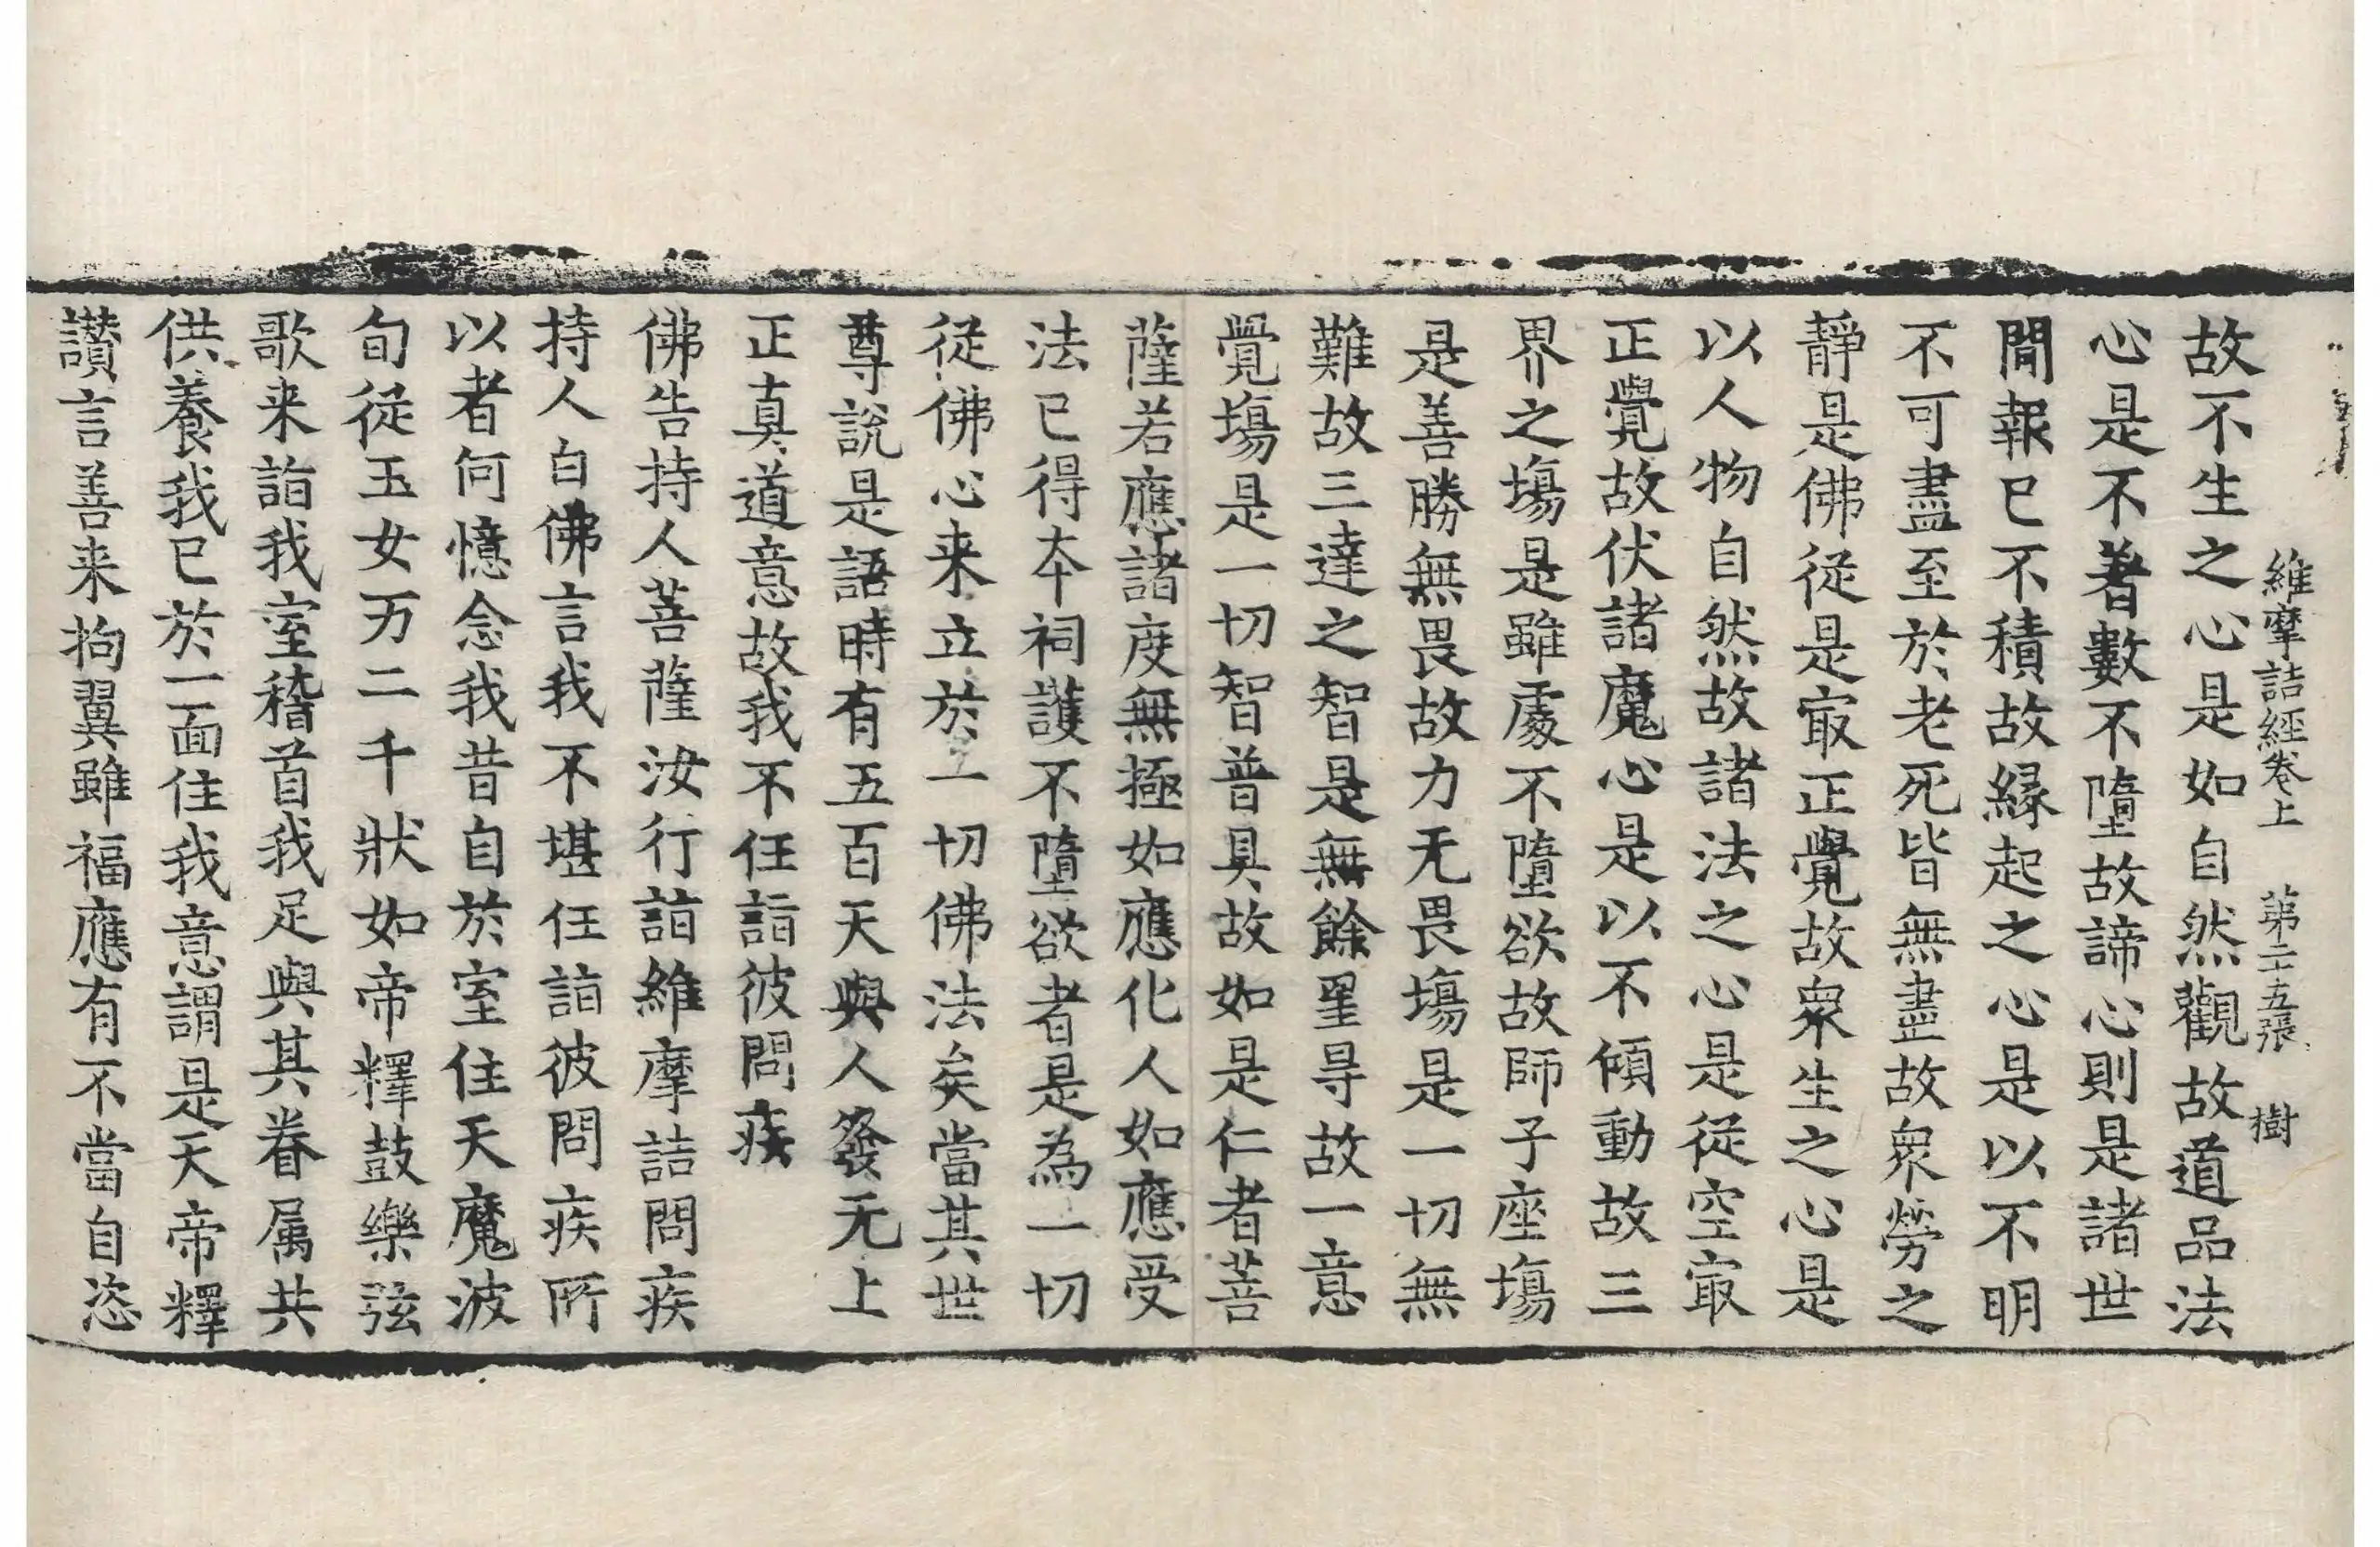 維摩詰經卷上 第二十五張 樹
故不生之心是如自然觀故道品法
心是不著數不墮故諦心則是諸世
間報已不積故緣起之心是以不明
不可盡至於老死皆無盡故衆勞之
靜是佛從是㝡正覺故衆生之心是
以人物自然故諸法之心是從空㝡
正覺故伏諸魔心是以不傾動故三
界之場是雖處不墮欲故師子座塲
是善勝無畏故力无畏塲是一切無
難故三達之智是無餘罣㝵故一意
覺塲是一切智普具故如是仁者菩
薩若應諸度無極如應化人如應受
法已得夲祠護不墮欲者是為一切
從佛心来立於一切佛法矣當其世
尊說是語時有五百天與人發无上
正真道意故我不任詣彼問疾
佛告持人菩薩汝行詣維摩詰問疾
持人白佛言我不堪任詣彼問疾所
以者何憶念我昔自於室住天魔波
旬從玉女万二千狀如帝釋鼓樂弦
歌来詣我室稽首我足與其眷属共
供養我已於一面住我意謂是天帝釋
讃言善来拘翼雖福應有不當自恣